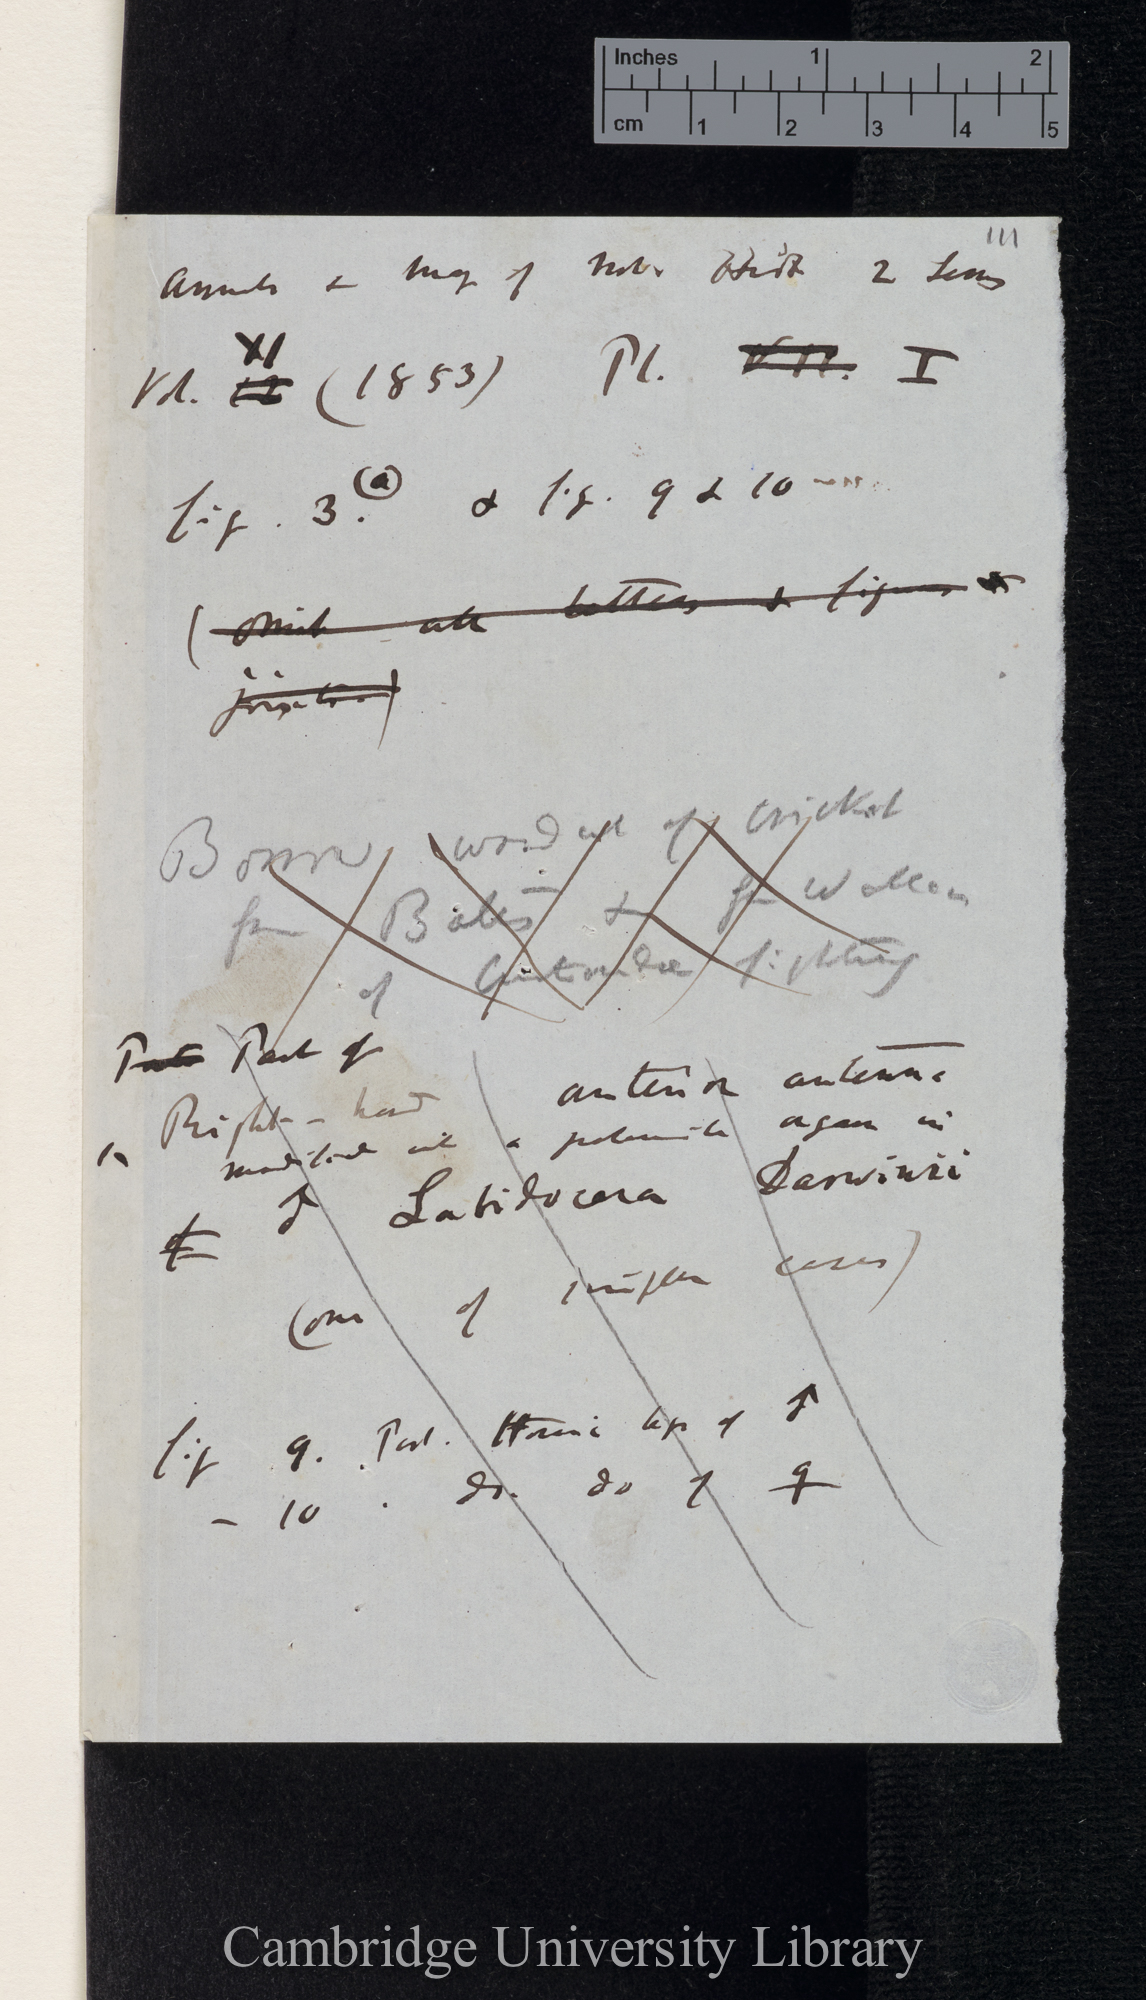 Inches 1 2
cm 1 2 3 4 5
111
Annals & Mag of Nat. Hist 2 Series
Vol. XI (1853) Pl. VII. I
fig. 3. (a) & fig. 9 & 10
(Omit all letters & figures &
joints.)
Borrow wood cut of Cricket
from Bates & for Wallace
of fighting
Part Part of
Right-hand anterior antenna
modified into a prehensile organ in
of ♂ Labidocera Darwinii
(one of simpler cases)
fig 9. Post. Thoracic legs of ♂
– 10. do. do of ♀
Cambridge University Library